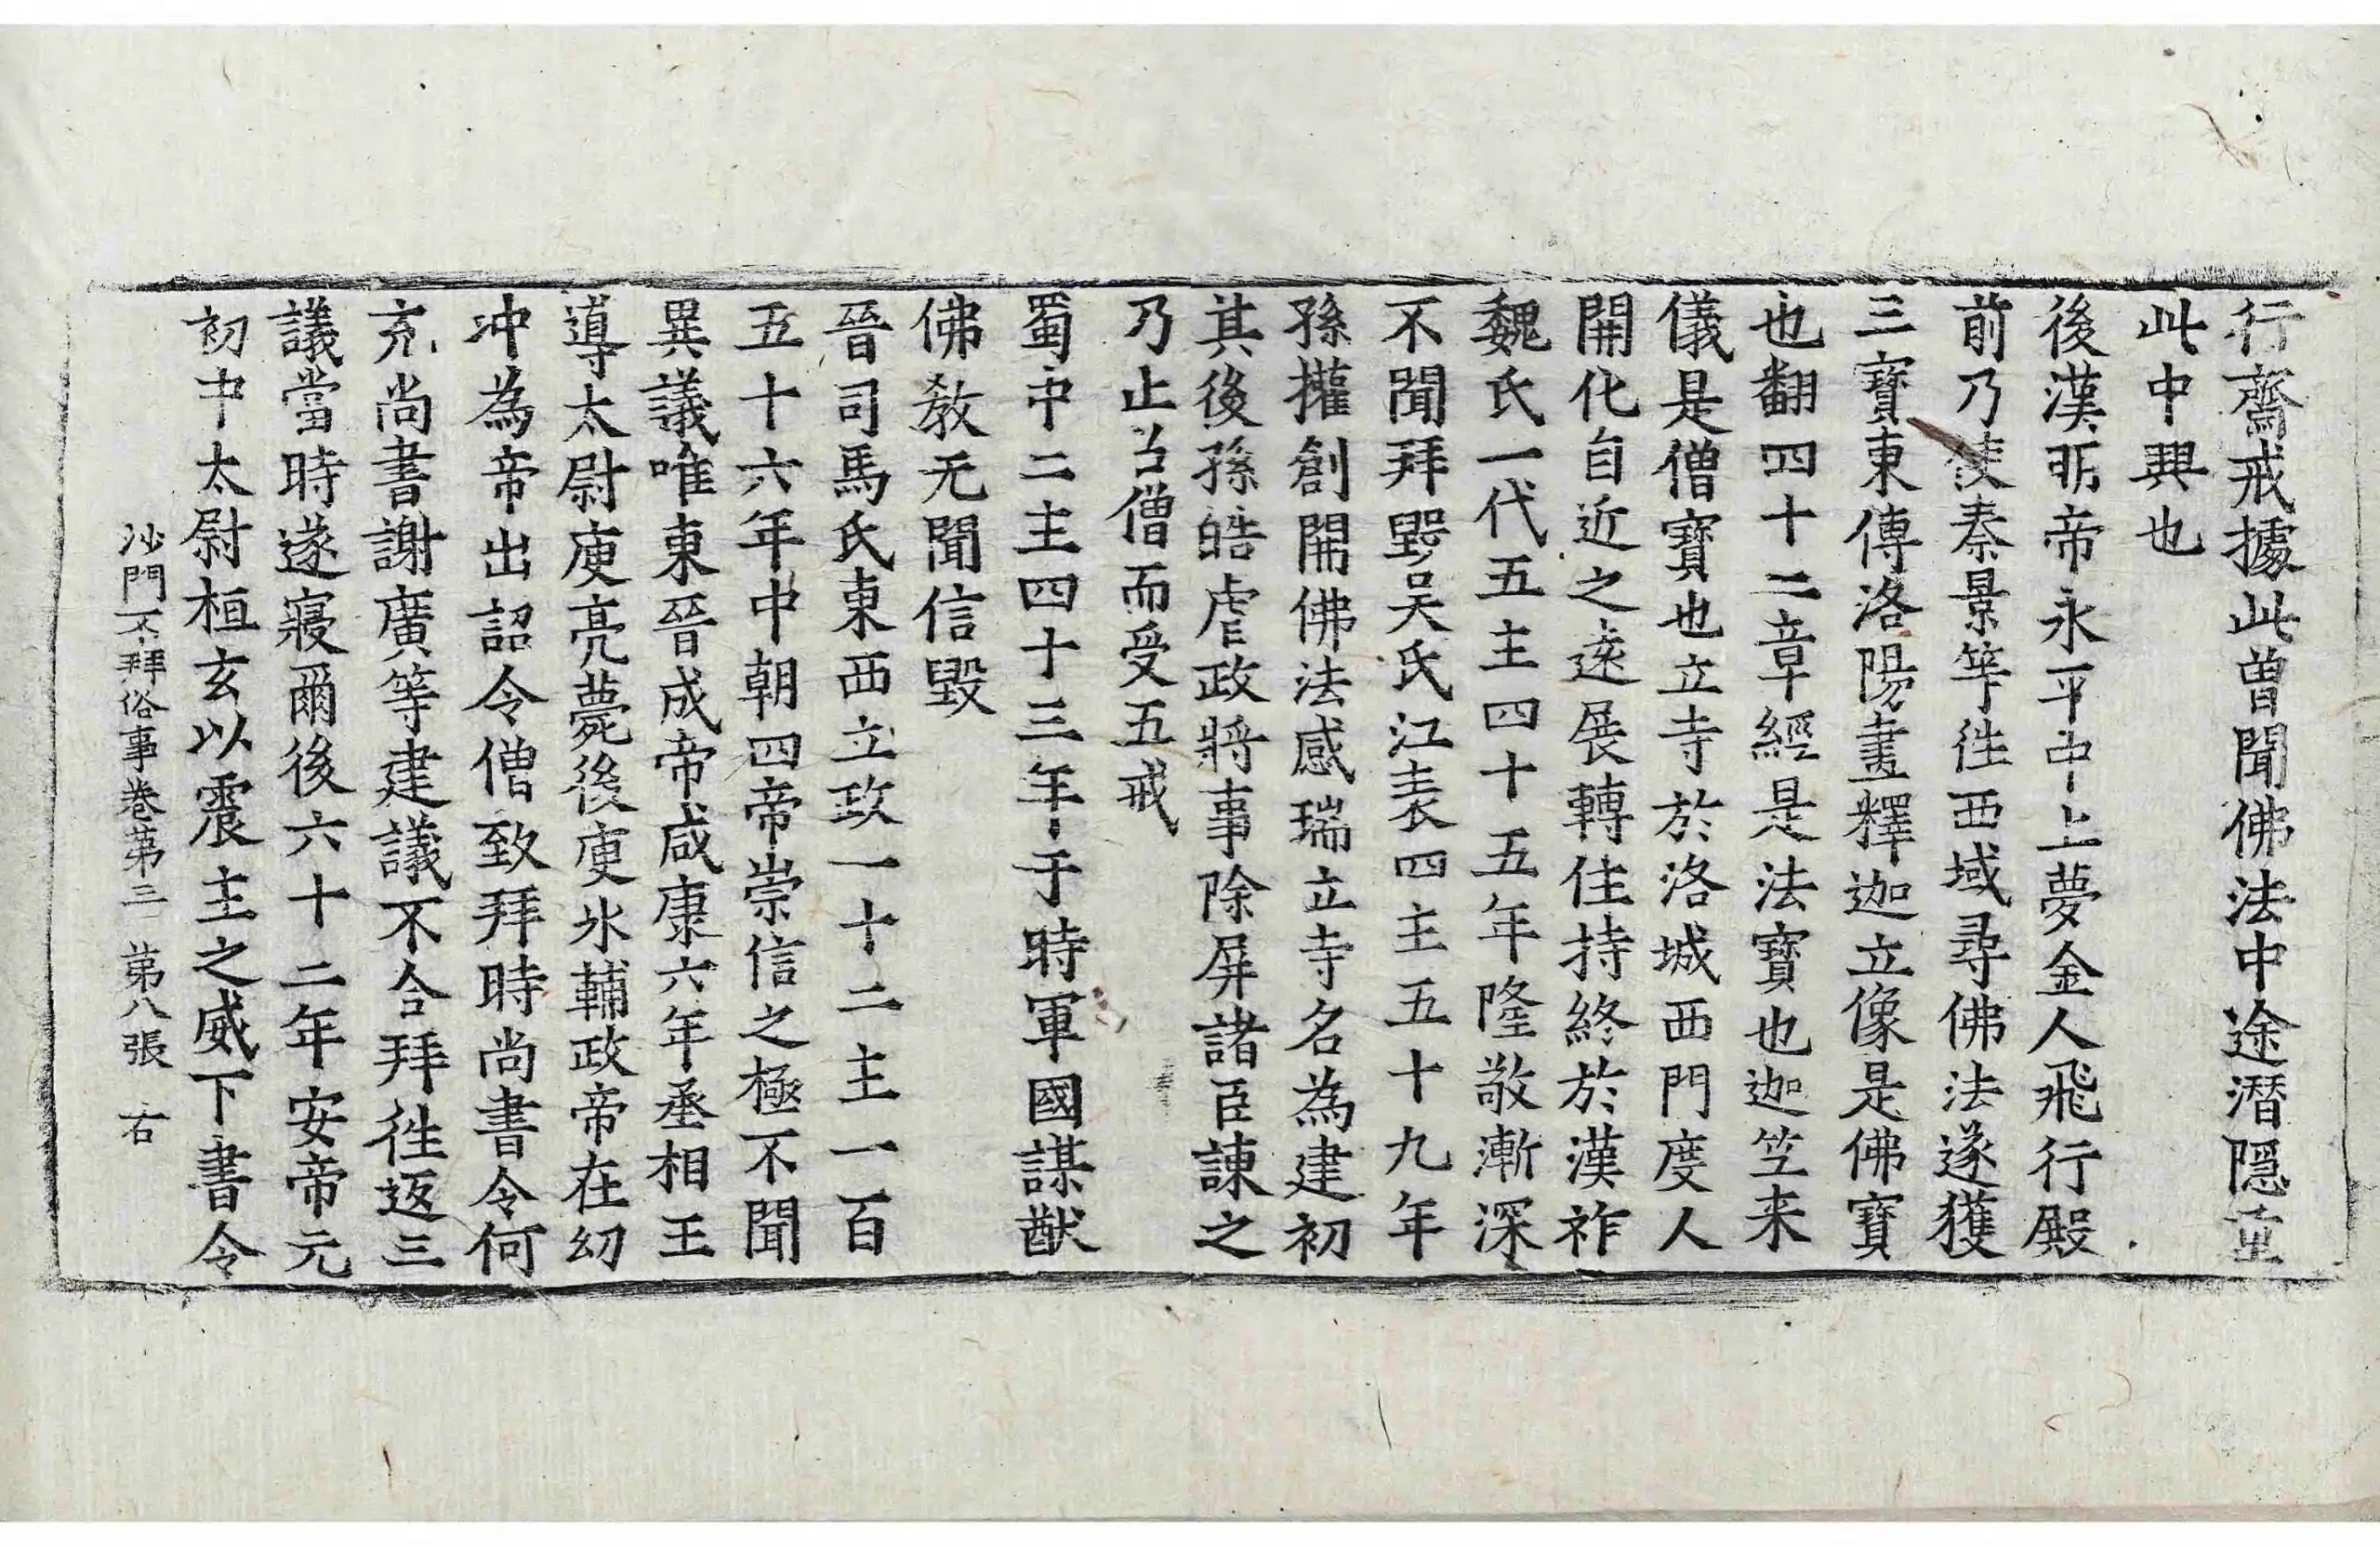 行齋戒據此曽聞佛法中途潛隱重
此中興也
後漢明帝永平中上夢金人飛行殿
前乃使秦景等往西域尋佛法遂獲
三寶東傳洛陽畫釋迦立像是佛寶
也翻四十二章經是法寶也迦竺来
儀是僧寶也立寺於洛城西門度人
開化自近之遠展轉住持終於漢祚
魏氏一代五主四十五年隆敬漸深
不聞拜毀吴氏江表四主五十九年
孫權創開佛法感瑞立寺名為建初
其後孫皓虐政將事除屏諸臣諫之
乃止召僧而受五戒
蜀中二主四十三年于時軍國謀猷
佛教无聞信毀
晉司馬氏東西立政一十二主一百
五十六年中朝四帝崇信之極不聞
異議唯東晉成帝咸康六年丞相王
導太尉庾亮薨後庾氷輔政帝在幼
冲為帝出詔令僧致拜時尚書令何
充尚書謝廣等建議不合拜往返三
議當時遂寢爾後六十二年安帝元
初中太尉桓玄以震主之威下書令
沙門不拜俗事卷第三　第八張　右